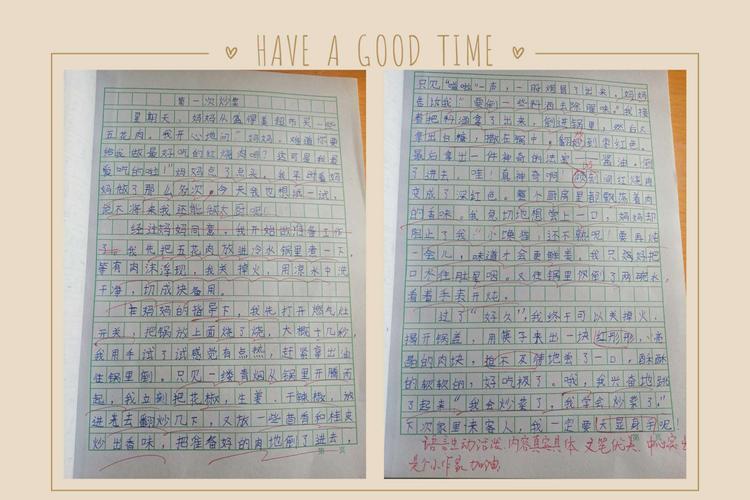 HAVE A GOOD TIME
第一次炒菜
星期天，妈妈从盒得美超市买一些
五花肉。我开心地问"妈妈，难道你要
给我做最好吃的红烧肉吗？这可是我最
爱吃的啦！"妈妈点了点头。我平时看妈
妈做了那么多次，今天我也想试一试，
说不定将来我还能做大厨呢。
经过妈妈同意，我开始做准备工作
了。我先把五花肉放进冷水锅里煮一下，
等有肉沫浮现，我关掉火，用凉水中洗
干净，切成块备用。
在妈妈的指导下，我先打开燃气灶
开关，把锅放上面烧了烧，大概十几秒，
我用手试了试感觉有点热，赶紧拿出油
往锅里倒。只见一缕青烟从锅里升腾而
起，我立刻把花椒，生姜，干辣椒，放
进去翻炒几下，又放一些茴香和桂皮
炒出香味，把准备好的肉地倒了进去，
只见"嗞啦"一声，一股烟冒了出来，妈妈
告诉我"要倒一些料酒去除腥味。"我接
着把料酒拿了出来，倒进锅里，然后又
拿出白糖，撒在锅中，翻炒到枣红色。
最后拿出一件神奇的法宝——酱油，倒
了进去，哇！真神奇啊，顷刻间红烧肉
变成了深红色。整个厨房里都飘荡着肉
的香味。我急切地想尝上一口，妈妈却
阻止了我"小馋猫，还不熟呢！要再炖
一会儿，味道才会更鲜美。我只好把
口水往肚里咽。又往锅里倒了两碗水，
看着手表开炖。
过了"好久"，我终于可以关掉火，
揭开锅盖，用筷子夹出一块红彤彤，亮
晶的肉块，迫不及待地尝了一口，酥酥
的软软的，好吃极了。哦，我兴奋地跳
了起来"我会炒菜了，我学会炒菜了"
下次家里来客人，我一定要大显身手呢！
语言生动活泼，内容真实具体，文笔优美，中心突出
是个小作家，加油。